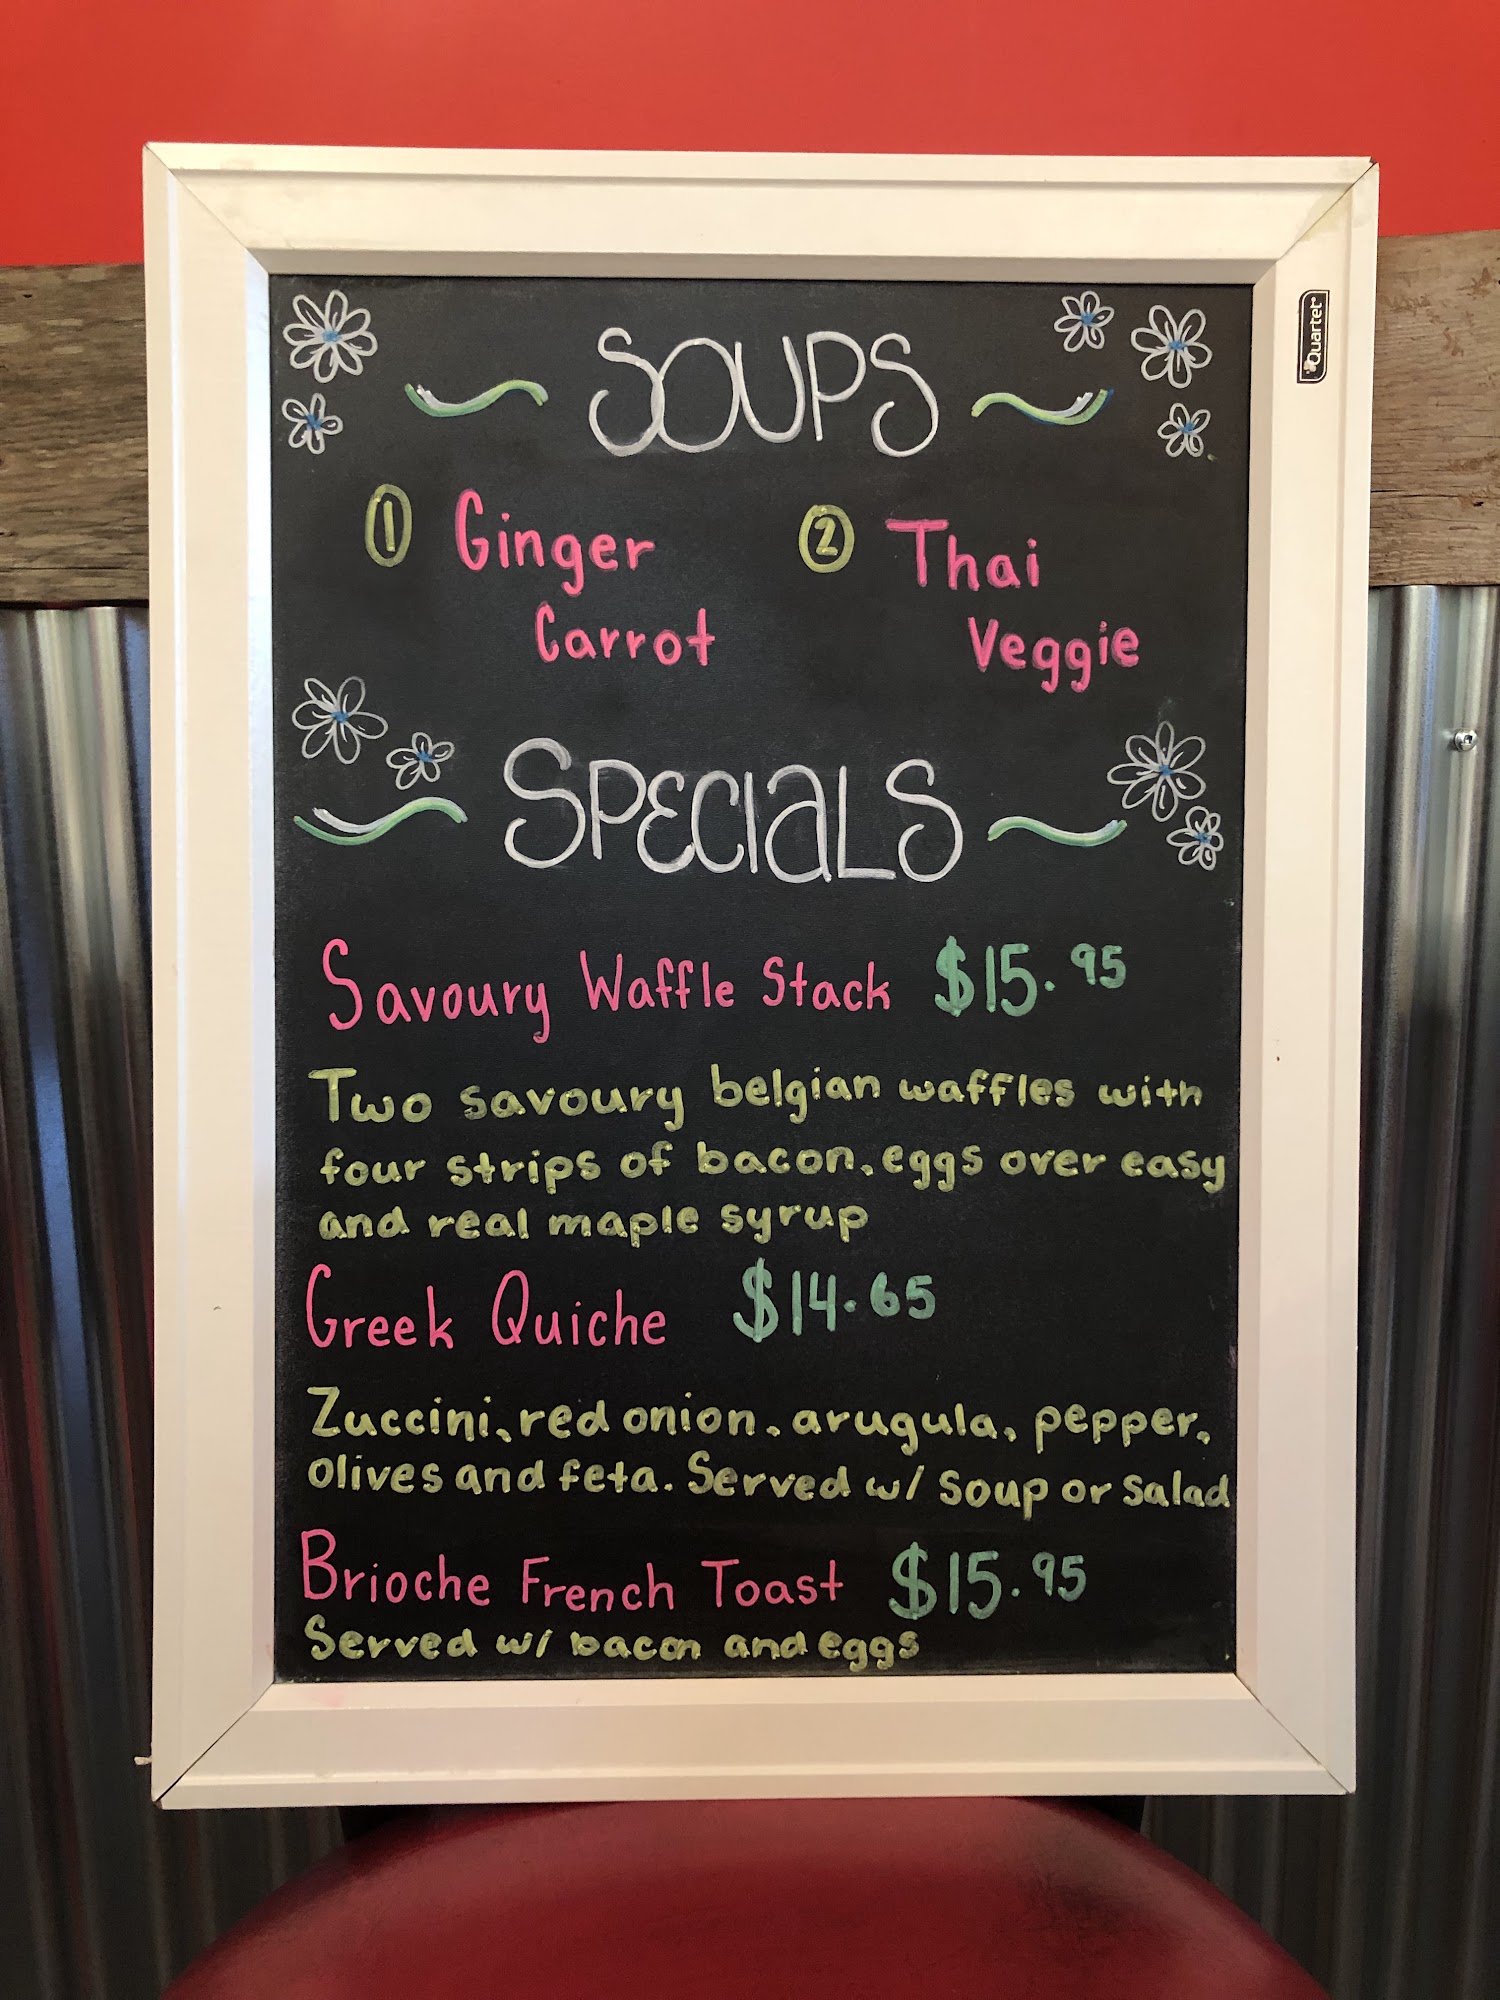 Quartet
SOUPS
① Ginger Carrot
② Thai Veggie
SPECIALS
Savoury Waffle Stack $15.95
Two savoury belgian waffles with
four strips of bacon, eggs over easy
and real maple syrup
Greek Quiche $14.65
Zuccini, red onion, arugula, pepper,
olives and feta. Served w/ soup or salad
Brioche French Toast $15.95
Served w/ bacon and eggs